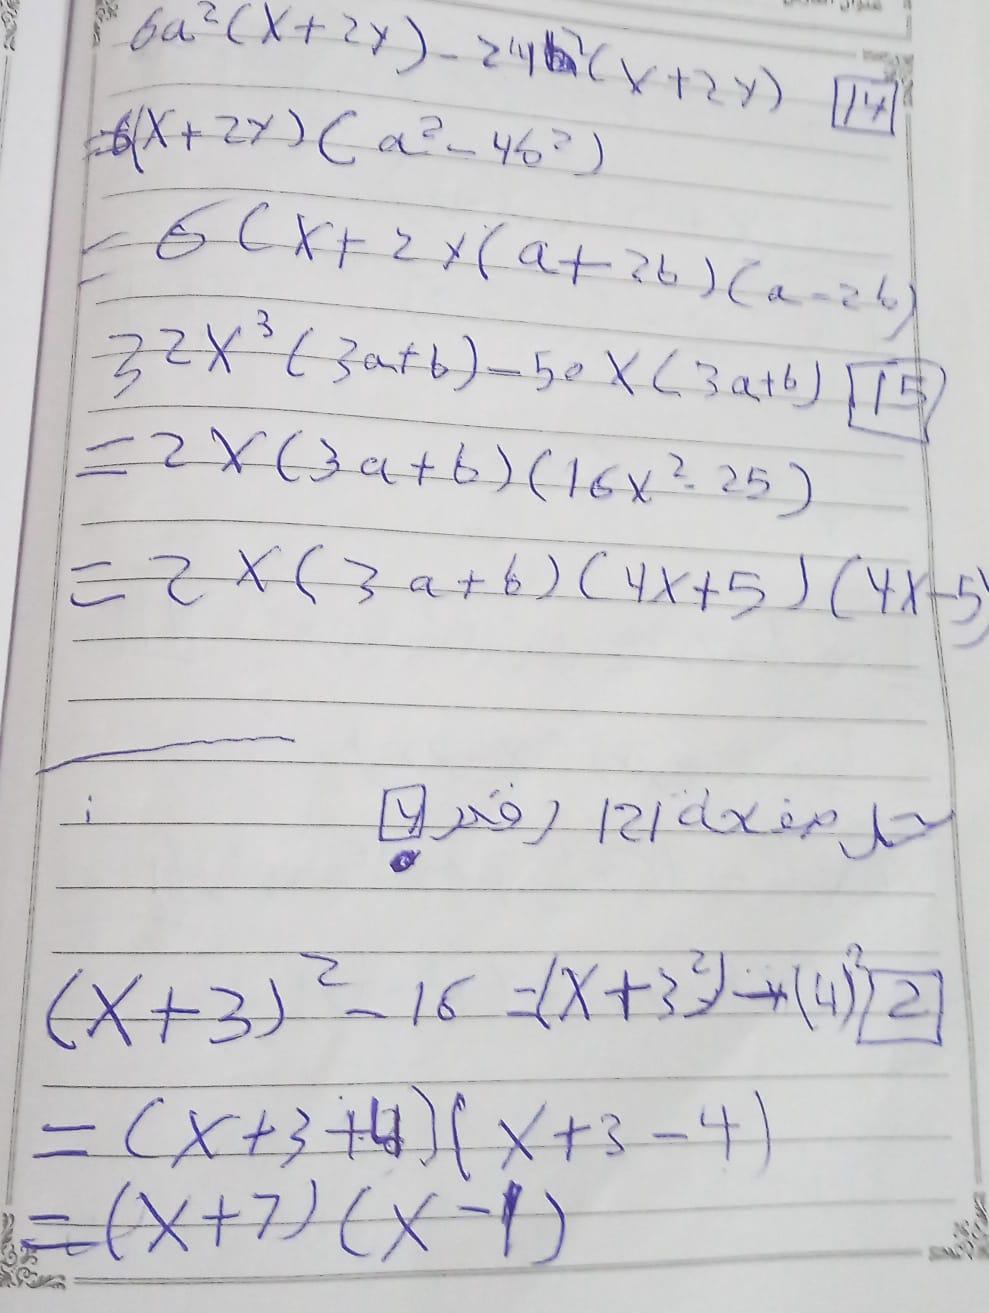 6a²(x+2y)-24b²(x+2y) [14]
=6(x+2y)(a²-4b²)
=6(x+2y(a+2b)(a-2b)
32x³(3a+b)-50x(3a+b) [15]
=2x(3a+b)(16x²-25)
=2x(3a+b)(4x+5)(4x-5)
121
(x+3)²-16=(x+3²)-(4)² [2]
=(x+3+4)(x+3-4)
=(x+7)(x-1)